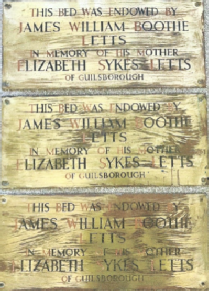 THIS BED WAS ENDOWED BY
JAMES WILLIAM BOOTHE
LETTS
IN MEMORY OF HIS MOTHER
ELIZABETH SYKES-LETTS
OF GUILSBOROUGH
THIS BED WAS ENDOWED BY
JAMES WILLIAM BOOTHE
LETTS
IN MEMORY OF HIS MOTHER
ELIZABETH SYKES-LETTS
OF GUILSBOROUGH
THIS BED WAS ENDOWED BY
JAMES WILLIAM BOOTHE
LETTS
IN MEMORY OF HIS MOTHER
ELIZABETH SYKES LETTS
OF GUILSBOROUGH